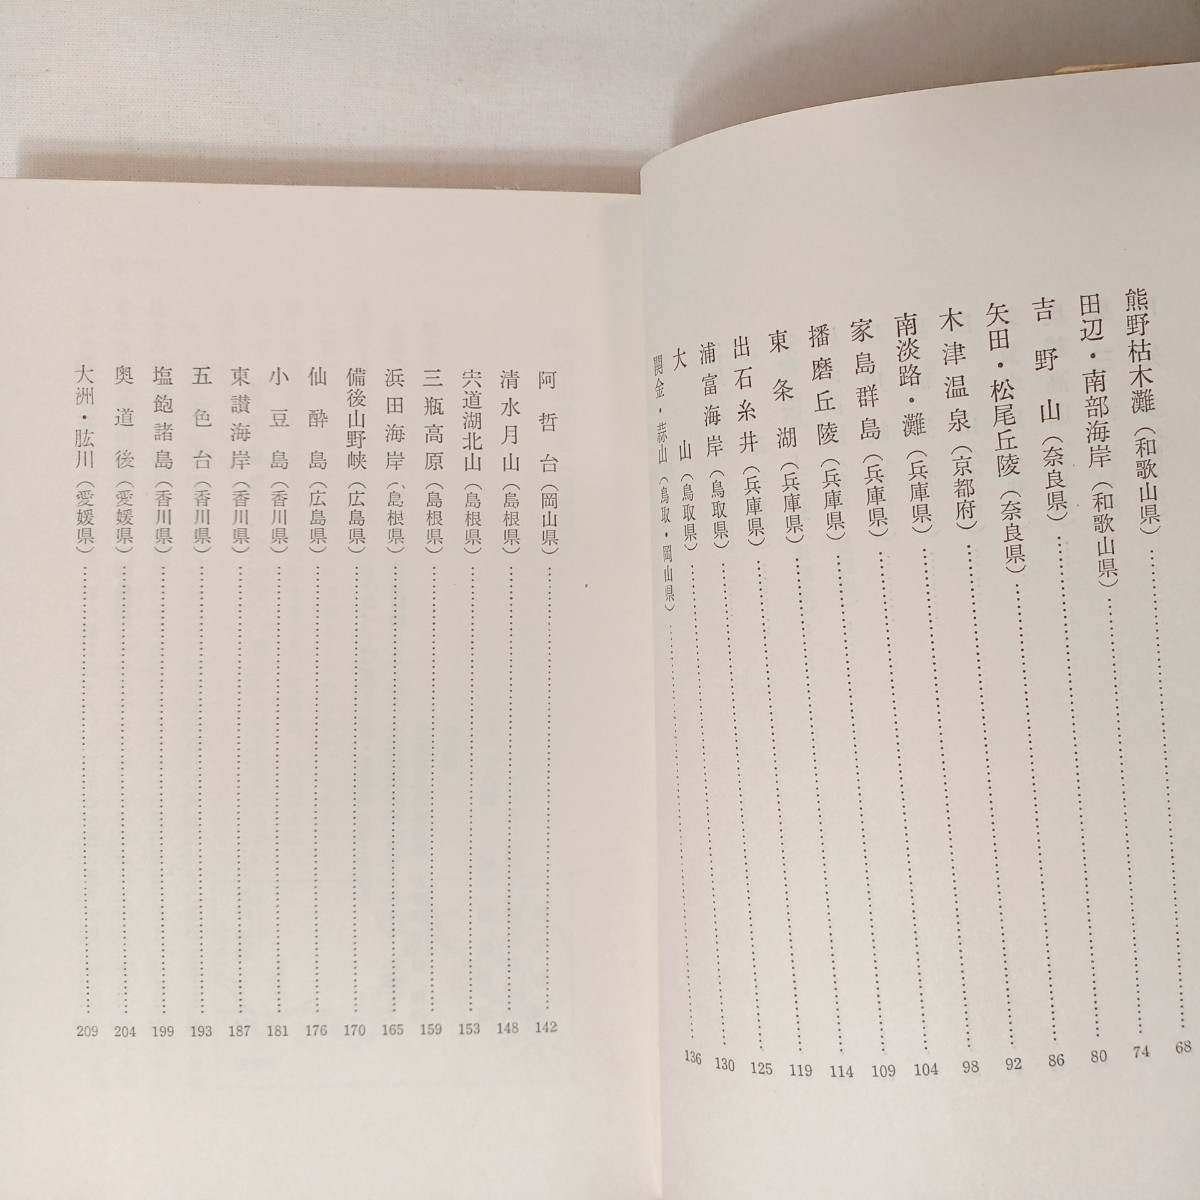 熊野枯木灘（和歌山県）……68
田辺・南部海岸（和歌山県）……74
吉野山（奈良県）……80
矢田・松尾丘陵（奈良県）……86
木津温泉（京都府）……92
南淡路・灘（兵庫県）……98
家島群島（兵庫県）……104
播磨丘陵（兵庫県）……109
東条湖（兵庫県）……114
出石糸井（兵庫県）……119
浦富海岸（鳥取県）……125
大山（鳥取県）……130
関金・蒜山（鳥取・岡山県）……136
阿哲台（岡山県）……142
清水月山（島根県）……148
宍道湖北山（島根県）……153
三瓶高原（島根県）……159
浜田海岸（島根県）……165
備後山野峡（広島県）……170
仙酔島（広島県）……176
小豆島（香川県）……181
東讃海岸（香川県）……187
五色台（香川県）……193
塩飽諸島（香川県）……199
奥道後（愛媛県）……204
大洲・肱川（愛媛県）……209